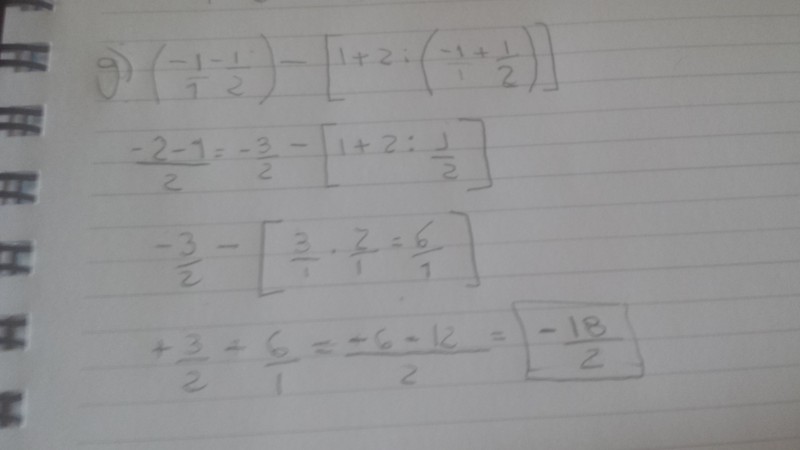 g) (-1/1 - 1/2) - [1 + 2 : (-1/1 + 1/2)]
-2-1/2 = -3/2 - [1 + 2 : 1/2]
-3/2 - [3/1 . 2/1 = 6/1]
+3/2 - 6/1 = -6-12/2 = -18/2